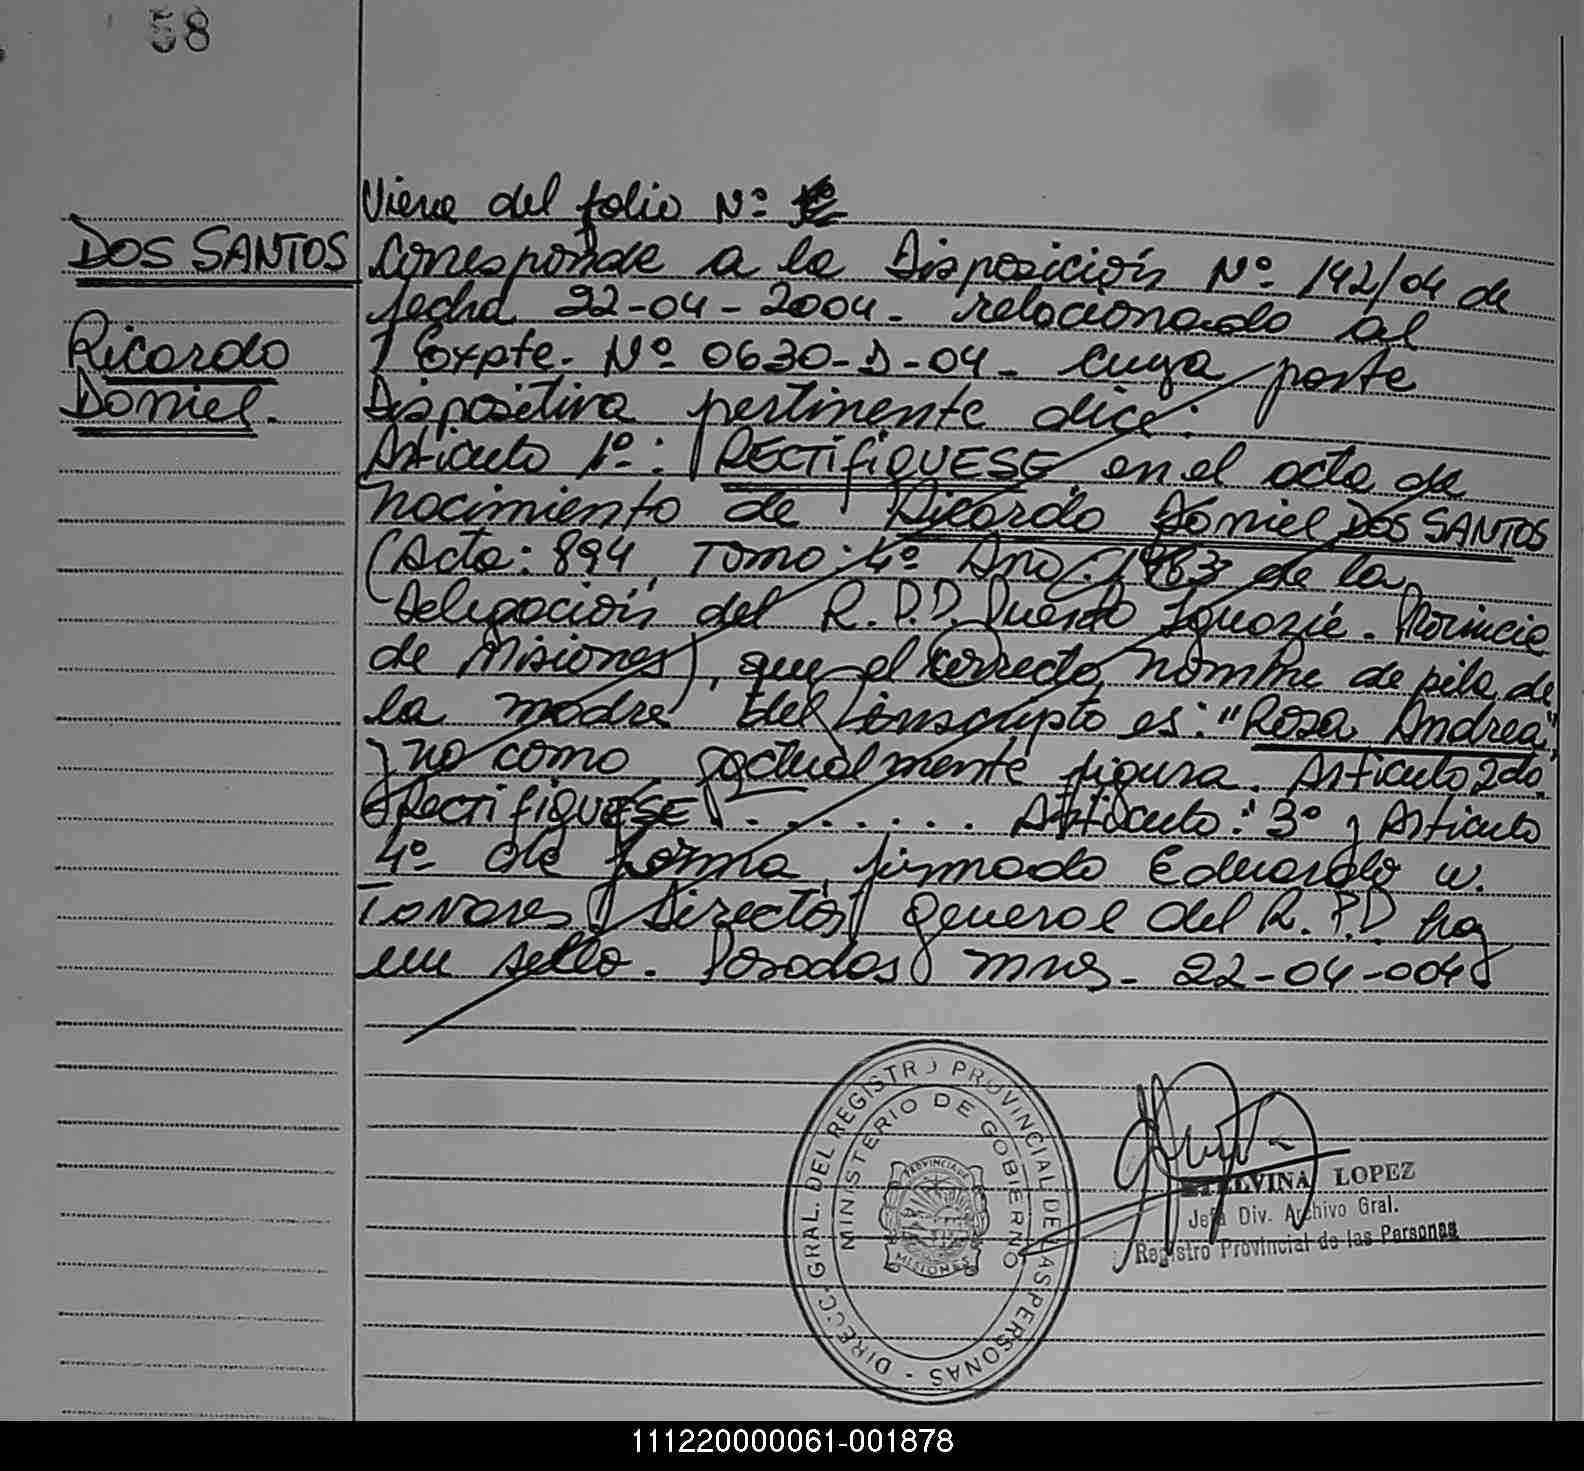 58
Viene del folio Nº
DOS SANTOS
Ricardo
Daniel.
Corresponde a la Disposición Nº 142/04 de
fecha 22-04-2004. relacionado al
Expte. Nº 0630-D-04. cuya parte
Dispositiva pertinente dice:
Artículo 1º: RECTIFIQUESE en el acta de
nacimiento de Ricardo Daniel DOS SANTOS
(Acta: 894, Tomo: 4º Año: 1983 de la
Delegación del R.P.P. Puerto Iguazú. Provincia
de Misiones), que el correcto nombre de pila de
la madre del inscripto es: "Rosa Andrea"
y no como actualmente figura. Artículo 2do.
RECTIFIQUESE ........ Artículo: 3º y Artículo
4º de forma, firmado Eduardo W.
Tavares Director General del R.P.P. hay
un sello. Posadas mns. 22-04-004
DIRECC. GRAL. DEL REGISTRO PROVINCIAL DE LAS PERSONAS -
MINISTERIO DE GOBIERNO
PROVINCIA DE
MISIONES
ETELVINA LOPEZ
Jefa Div. Archivo Gral.
Registro Provincial de las Personas
111220000061-001878